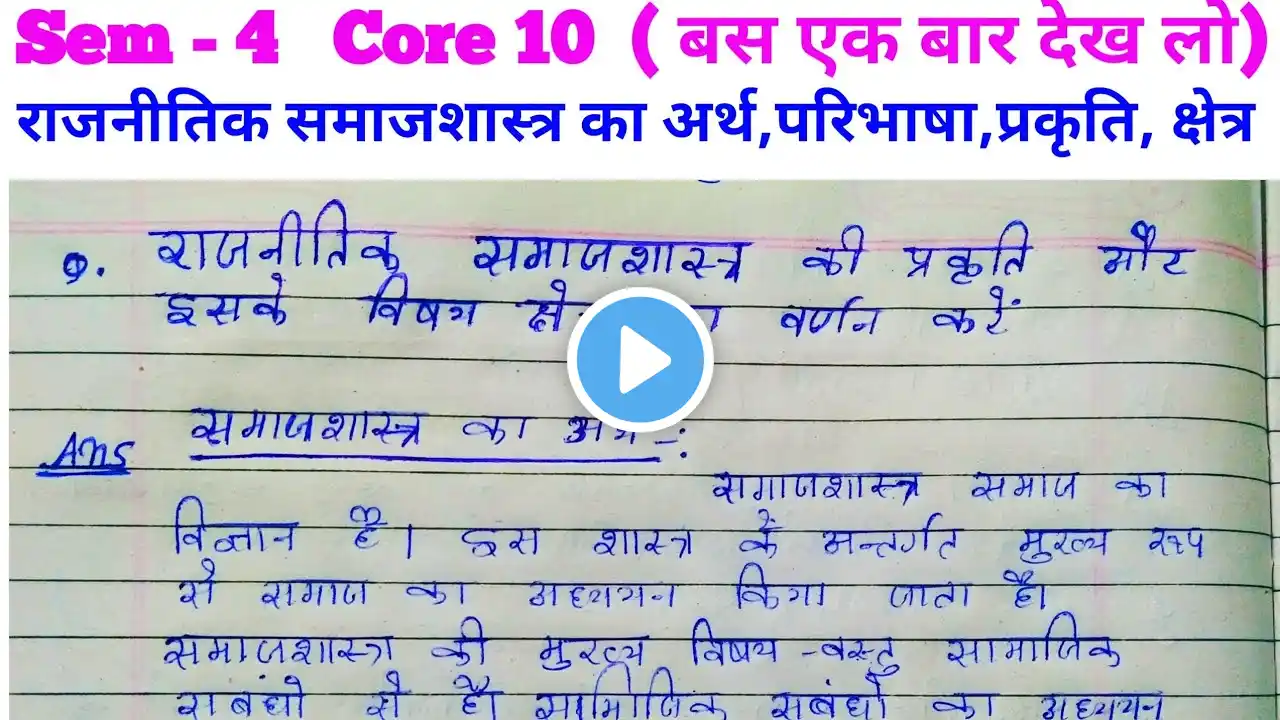 Sem - 4 Core 10 ( बस एक बार देख लो)
राजनीतिक समाजशास्त्र का अर्थ,परिभाषा,प्रकृति, क्षेत्र
Q. राजनीतिक समाजशास्त्र की प्रकृति और
इसके विषय वर्णन करें
Ans समाजशास्त्र का अर्थ -:
समाजशास्त्र समाज का
विज्ञान है। इस शास्त्र के अन्तर्गत मुख्य रूप
से समाज का अध्ययन किया जाता है।
समाजशास्त्र की मुख्य विषय-वस्तु सामाजिक
सबंधो से है। सामाजिक सबंधो का अध्ययन